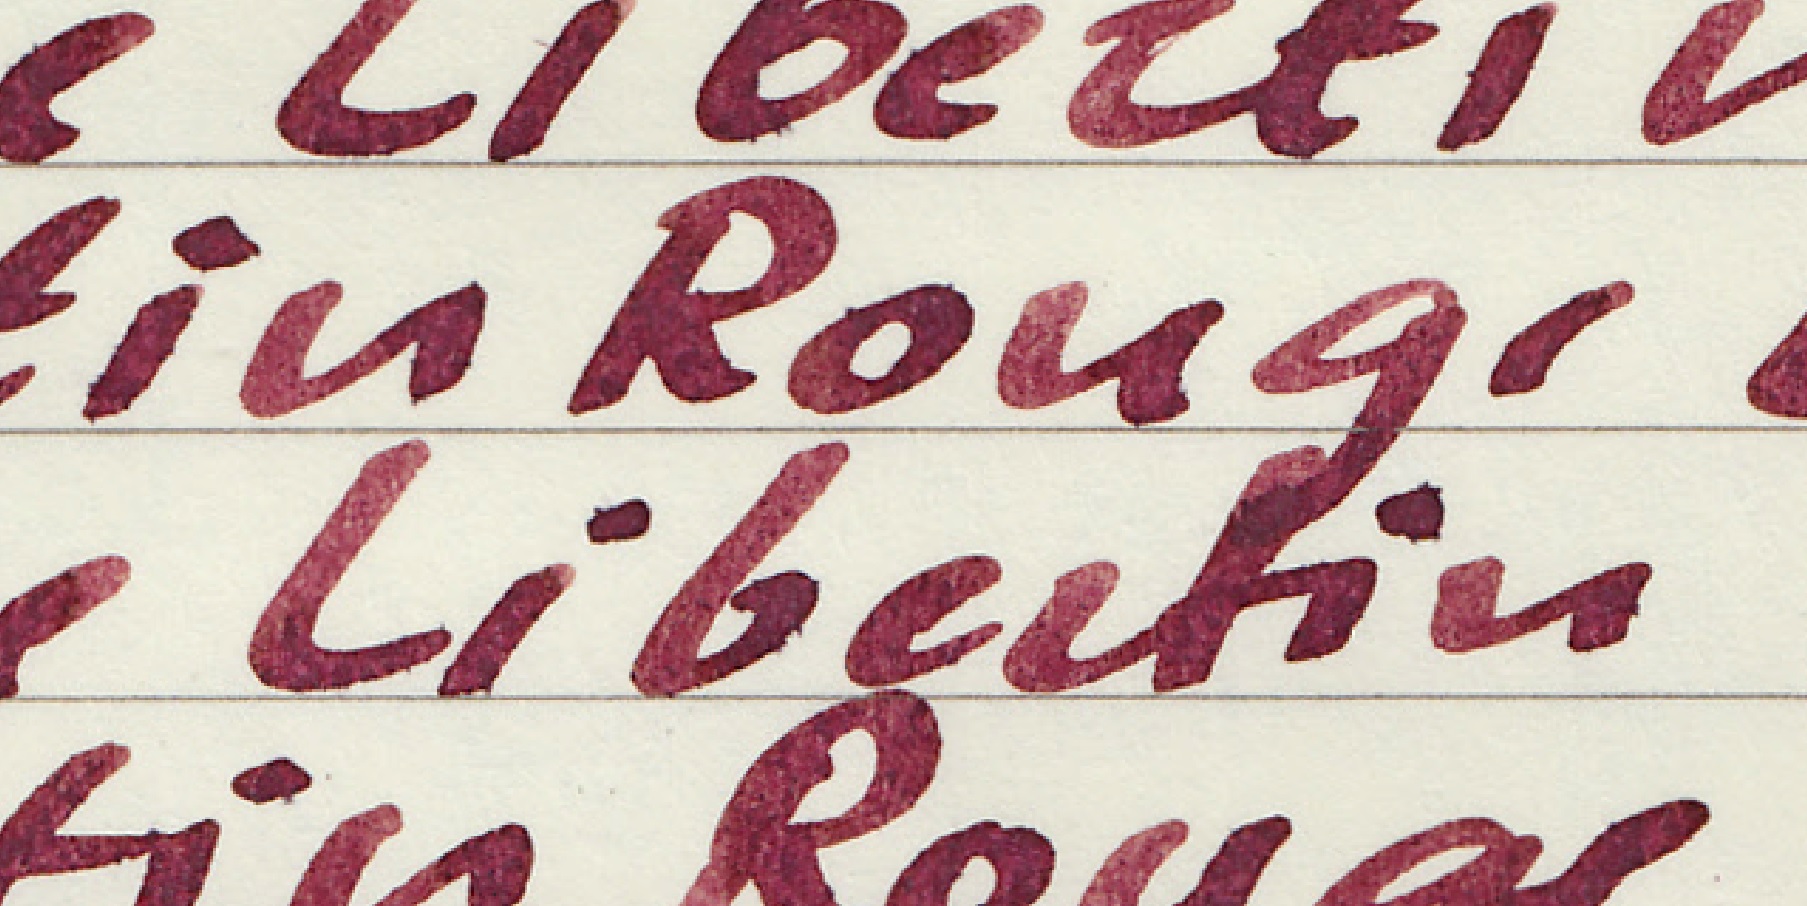 e Libertin
tin Rouge
e Libertin
tin Rouge